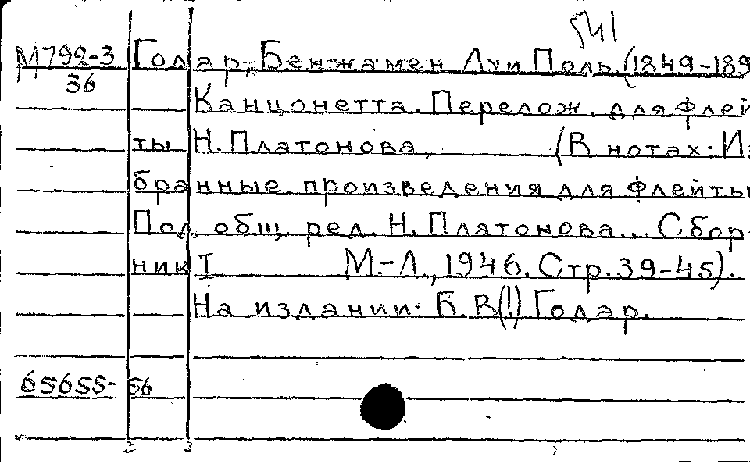 541
М792-3 Годар, Бенжамен Луи Поль (1849-189
36
Канцонетта. Перелож. для флей
ты Н. Платонова. (В нотах: Из
бранные произведения для флейты
Под общ. ред. Н. Платонова.. Сбор-
ник I М.-Л., 1946. Стр. 39-45).
На издании: Б. В(!) Годар.
65655-56